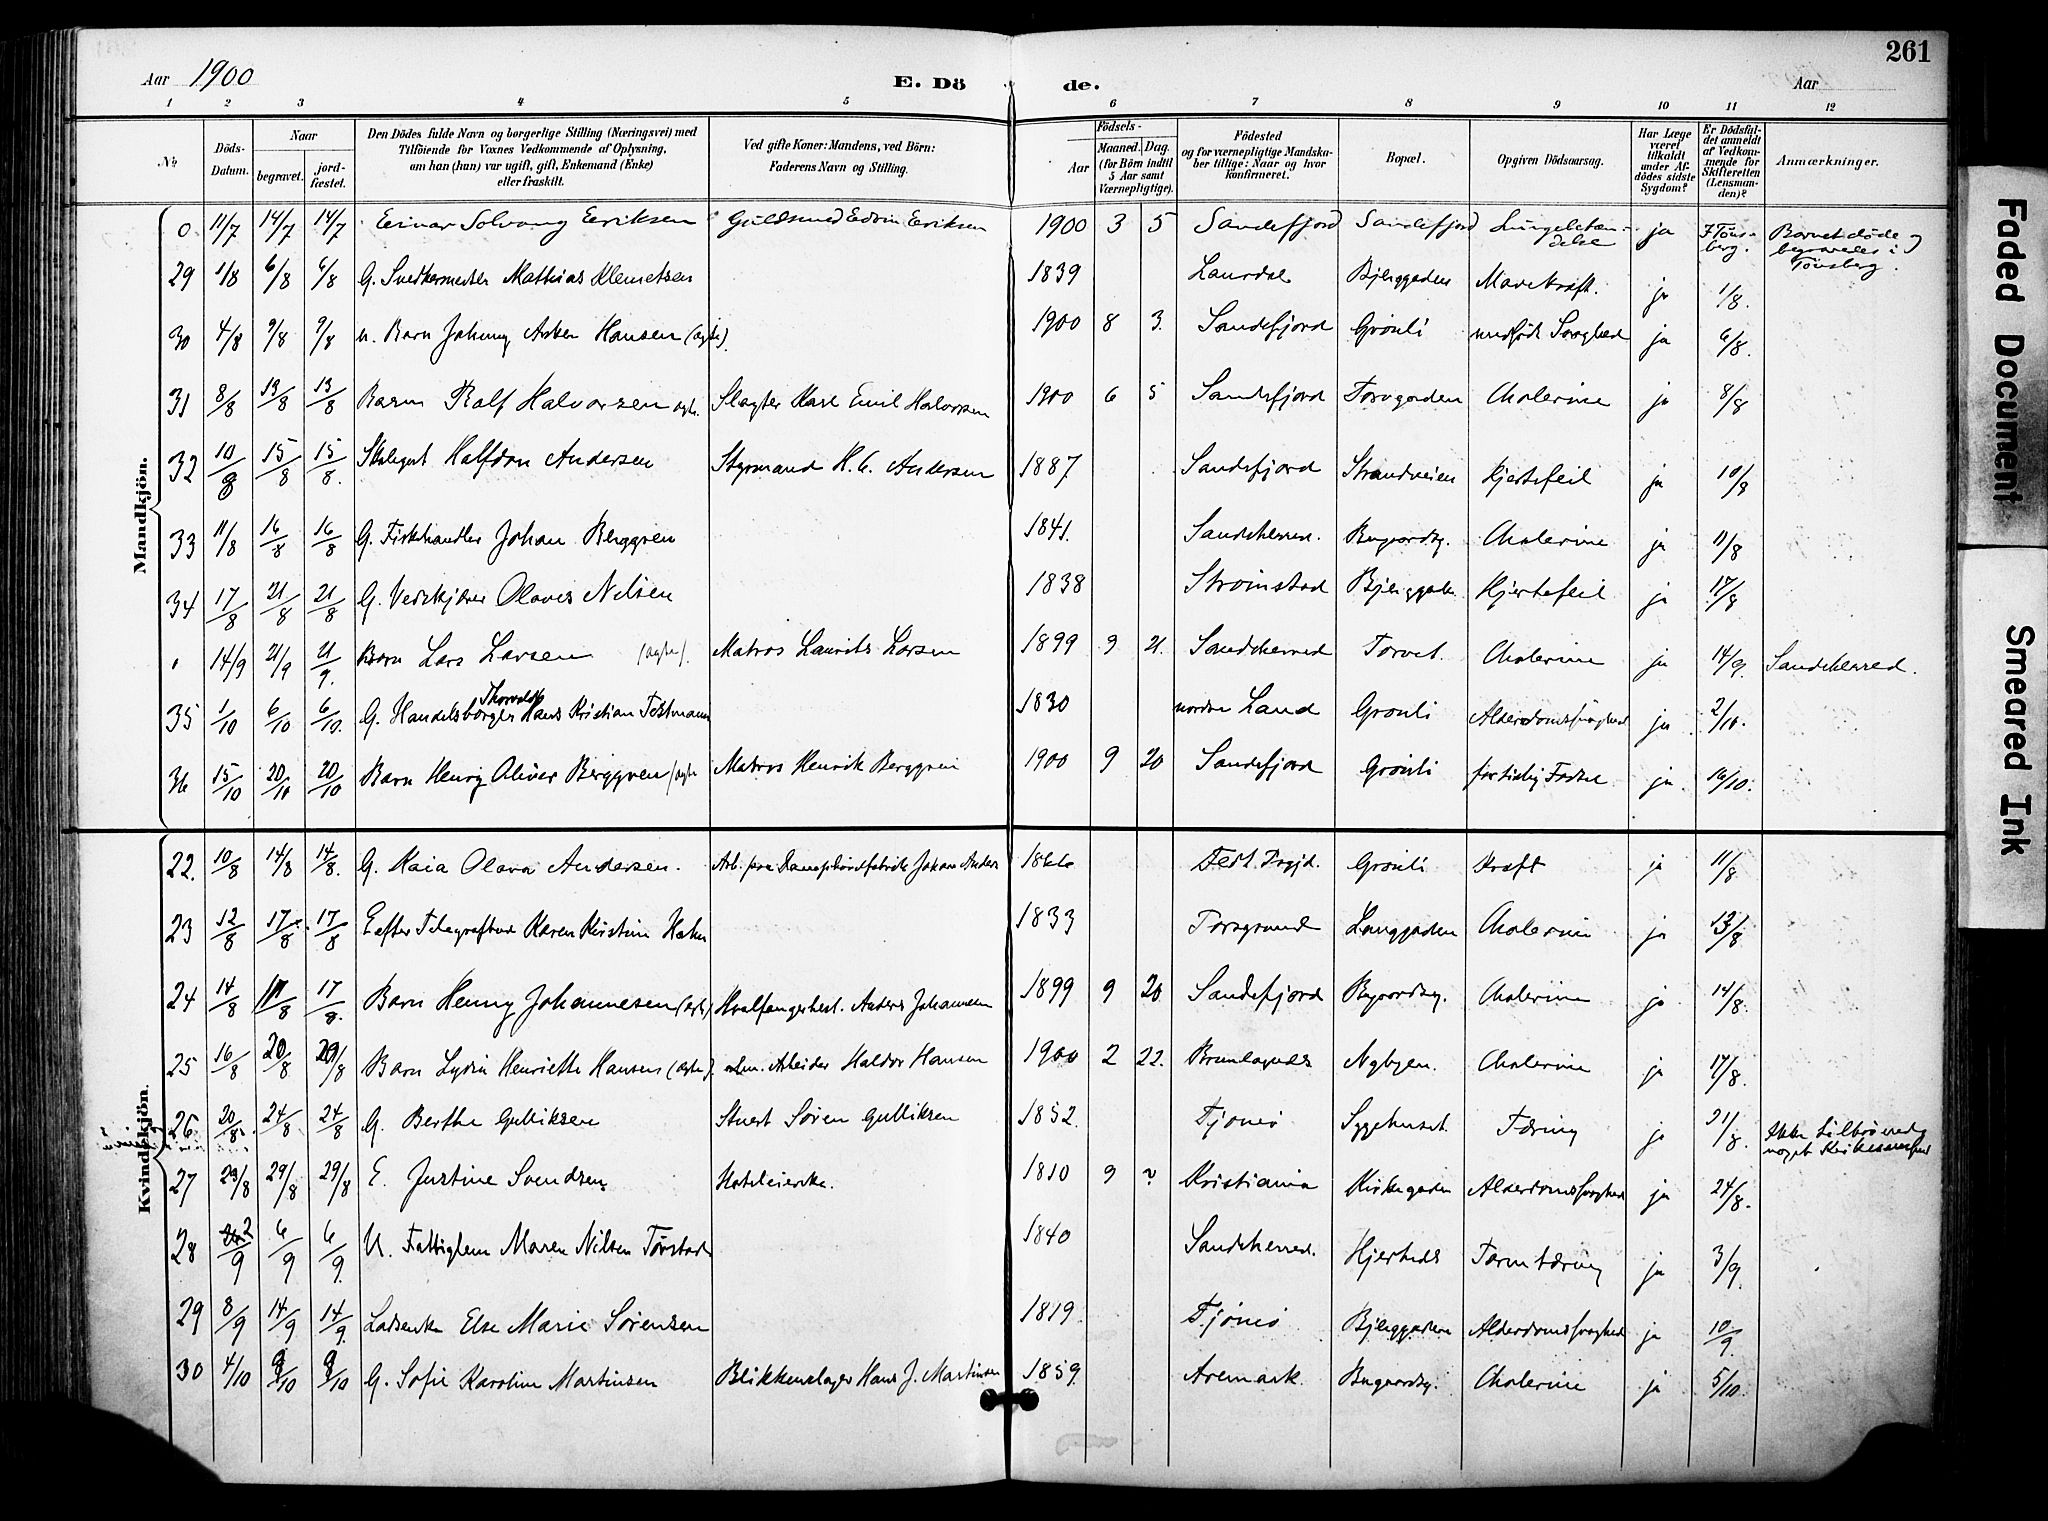 261
Aar 1900 E. Dö de. Aar
1 2 3 4 5 6 7 8 9 10 11 12
No.
Döds-Datum.
Naar
begravet.
jordfæstet.
Den Dödes fulde Navn og borgerlige Stilling (Næringsvei) med
Tilföiende for Voxnes Vedkommende af Oplysning,
om han (hun) var ugift, gift, Enkemand (Enke)
eller fraskilt.
Ved gifte Koner: Mandens, ved Börn:
Faderens Navn og Stilling.
Födsels-
Aar
Maaned. Dag.
(for Börn indtil
5 Aar samt
Værnepligtige).
Födested
og for værnepligtige Mandska-
ber tillige: Naar og hvor
konfirmeret.
Bopæl.
Opgiven Dödsaarsag.
Har Læge
været
tilkaldt
under Af-
dödes sidste
Sygdom?
Er Dödsfal-
det anmeldt
af Vedkom-
mende for
Skifteretten
(Lensman-
den)?
Anmærkninger.
Mandkjön.
0 11/7 14/7 14/7 Einar Solvang Eriksen Guldsmed Edvin Eriksen 1900 3 5 Sandefjord Sandefjord Lungebetæn-delse ja I Töns-berg. Barnet döde og begravedes i Tönsberg.
29 1/8 6/8 6/8 G. Snedkermester Mathias Klemetsen 1839 Laurdal Bjerggaden Mavekræft. ja 1/8.
30 4/8 9/8 9/8 u. Barn Johnny Asker Hansen (ægte). 1900 8 3. Sandefjord Grønli medfødt Svaghed ja 6/8.
31 8/8 13/8 13/8 Barn Ralf Halvorsen ægte. Slagter Karl Emil Halvorsen 1900 6 5 Sandefjord Torvgaden Cholerine ja 8/8
32 10/8 15/8 15/8. Skolegut Halfdan Andersen Styrmand H. C. Andersen 1887. Sandefjord Strandveien Hjertefeil ja 10/8
33 11/8 16/8 16/8 G. Fiskehandler Johan Berggren 1841. Sandeherred. Bugaardsg. Cholerine ja 11/8
34 17/8 21/8 21/8 G. Vedskjærer Olaves Nilsen 1838 Strømstad Bjerggaden Hjertefeil ja 17/8
14/9 21/9 21/9. Barn Lars Larsen (ægte). Matros Laurits Larsen 1899 9 21. Sandeherred Torvet. Cholerine ja 14/9. Sandeherred.
35 1/10 6/10 6/10. G. Handelsborger Thorvald Hans Kristian Tostmann 1830 nordre Land Grønli Alderdomssvaghed ja 2/10.
36 15/10 20/10 20/10 Barn Henry Oliver Berggren (ægte Matros Henrik Berggren 1900 9 20 Sandefjord Grønli fortidlig Fødsel ja. 16/10.
Kvindekjön.
22. 10/8 14/8 14/8. G. Kaia Olava Andersen. Johan Anders 1866 Grønli Kræft ja 11/8
23 12/8 17/8 17/8 E efter Karen Kristine Hahn 1833 Porsgrund Langgaden Cholerine ja 13/8
24 14/8 17/8 17/8. Barn Henny Johannesen (ægte) Hvalfangerbest. Anders Johansen 1899 9 20 Sandefjord Bugaardsg. Cholerine ja 14/8.
25 16/8 20/8 20/8 Barn Lydia Henriette Hansen (ægte). Arbeider Haldor Hansen 1900 2 22. Brunlagnæs Nybyen. Cholerine ja 17/8.
26 20/8. 24/8 24/8 G. Berthe Gulliksen Stuert Søren Gulliksen 1852. Tjømø Sygehuset. Tæring ja 21/8. Ikke
27 23/8 29/8 29/8 E. Justine Svendsen Hoteleierske. 1810 9 ? Kristiania Kirkegaden Alderdomssvaghed ja 24/8.
28 2/9 6/9 6/9. U. Fattiglem Maren Nilsen Tørstad 1840 Sandeherred. Hjertnes Tarmtæring ja 3/9.
29 8/9 14/9 14/9. Losenke Else Marie Sørensen 1819. Tjømø Bjerggaden Alderdomssvaghed ja 10/9.
30 4/10 9/10 9/10 G. Sofie Karoline Martinsen Blikkenslager Hans J. Martinsen 1859. Aremark. Bugaardsg. Cholerine ja 5/10.
Faded Document
Smeared Ink